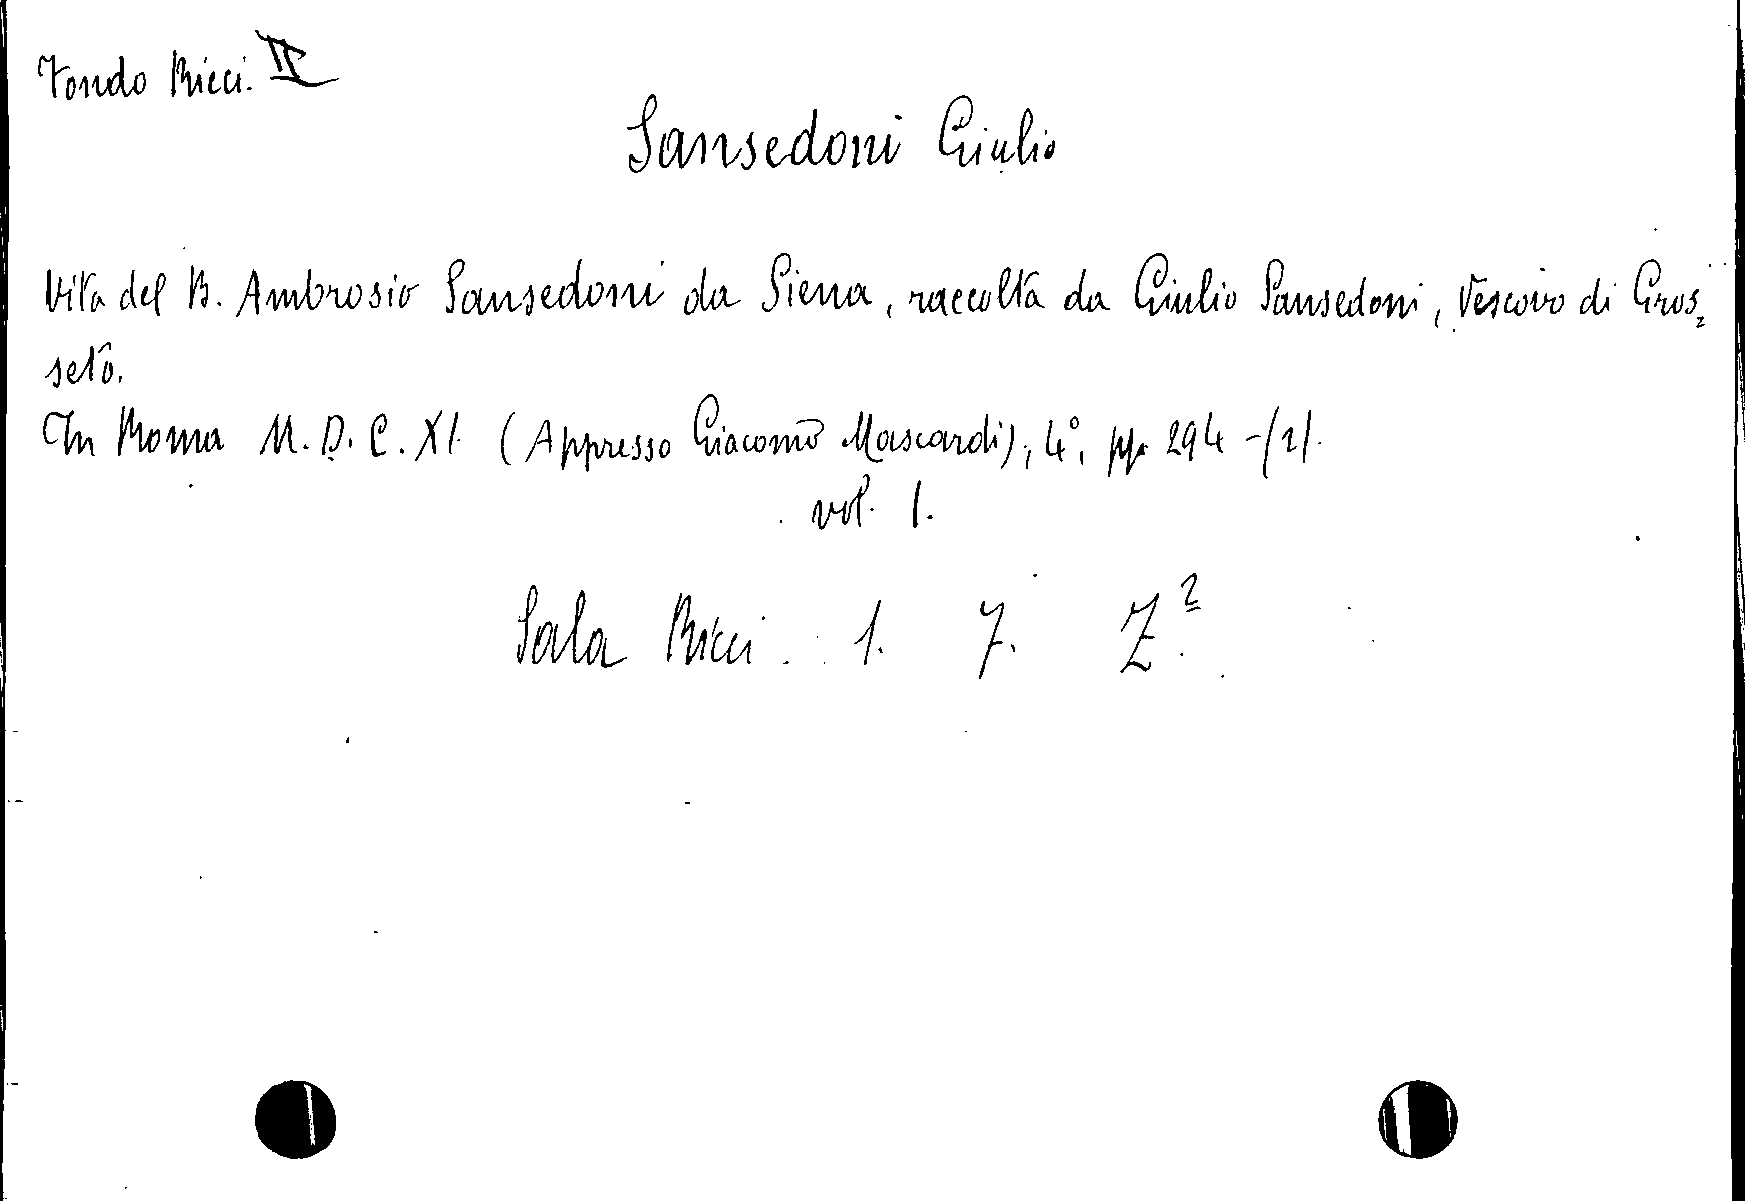 Fondo Ricci. II
Sansedoni Giulio
Vita del B. Ambrosio Sansedoni da Siena, raccolta da Giulio Sansedoni, Vescovo di Gros=
seto.
In Roma M.D.C.XI. (Appresso Giacomo Mascardi), 4°, pp. 294-(2).
vol. 1.
Sala Ricci. 1. 7. Z²